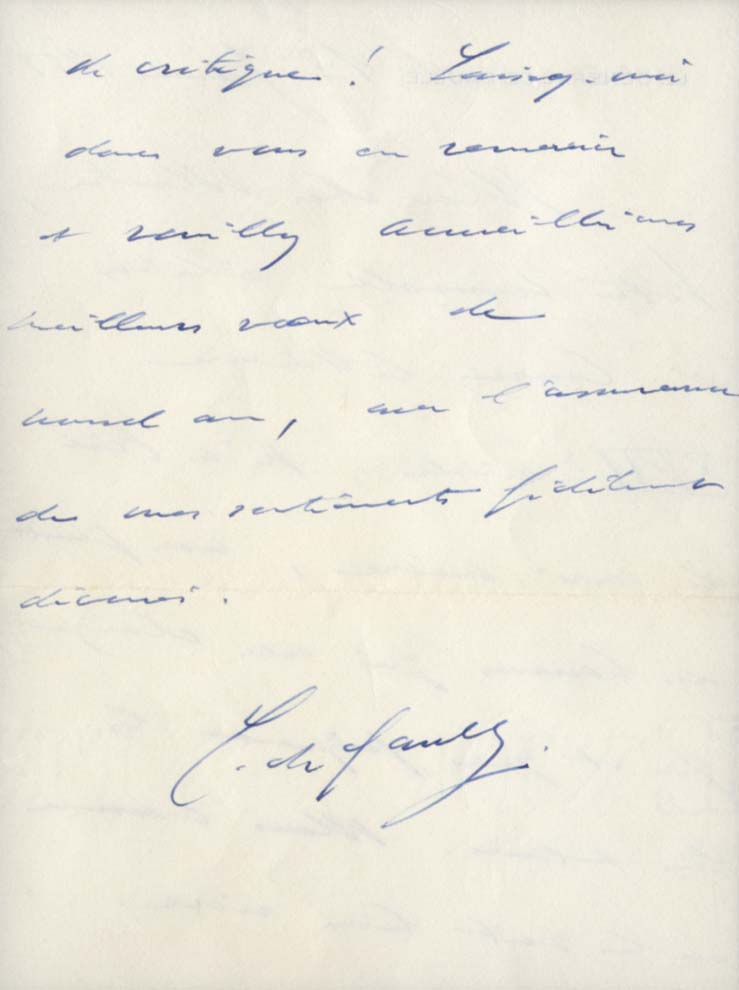 de critique ! Laissez-moi
donc vous en remercier
et veuillez accueillir mes
meilleurs vœux de
nouvel an, avec l'assurance
de mes sentiments fidèlement
dévoués.
C. de Gaulle.